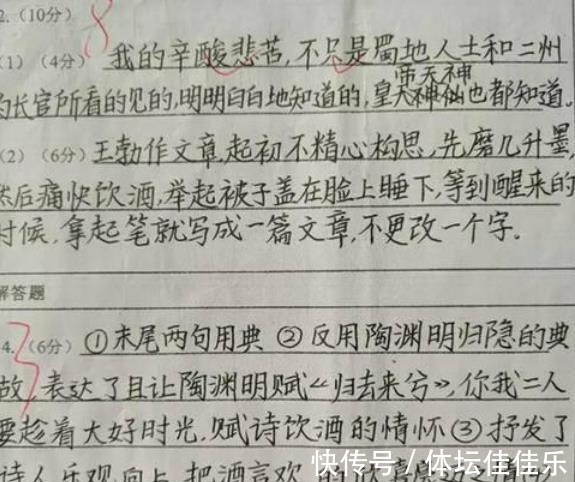 2.(10分) 8
(1)(4分) 我的辛酸悲苦,不只是蜀地人士和二州
的长官所看的见的,明明白白地知道的,皇天神仙也都知道。
帝天神
(2)(6分)王勃作文章,起初不精心构思,先磨几升墨,
然后痛快饮酒,举起被子盖在脸上睡下,等到醒来的
时候,拿起笔就写成一篇文章,不更改一个字.
解答题
4.(6分) ①末尾两句用典 ②反用陶渊明归隐的典
故,表达了且让陶渊明赋《归去来兮》,你我二人
要趁着大好时光,赋诗饮酒的情怀③抒发了
诗人乐观向上,把酒言欢
快传号/体坛佳佳乐